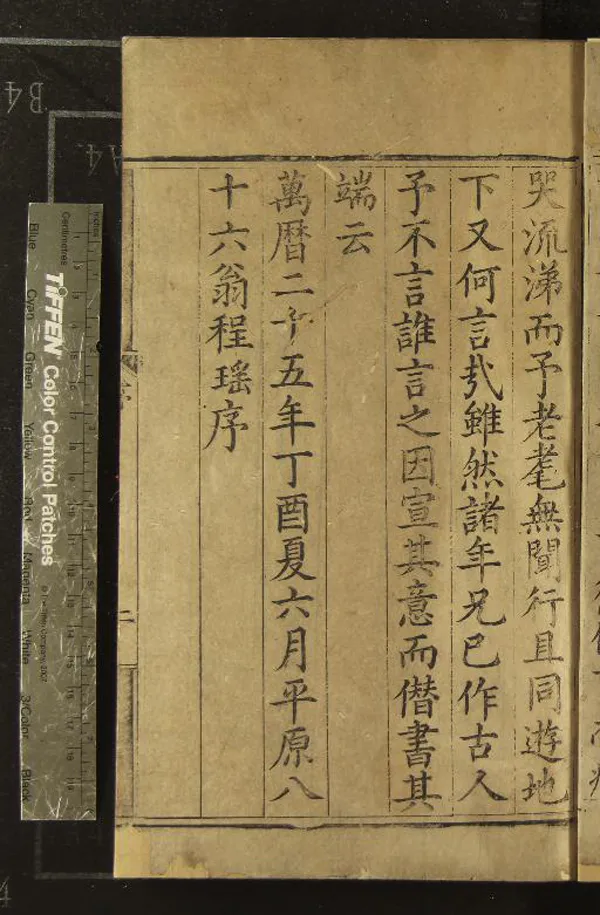 哭流涕而予老耄無聞行且同遊地
下又何言㢤雖然諸年兄已作古人
予不言誰言之因宣其意而僭書其
端云
萬曆二十五年丁酉夏六月平原八
十六翁程瑶序
序
二
B4
A4
inches
Centimetres
TIFFEN Color Control Patches
© The Tiffen Company, 2007
Blue
Cyan
Green
Yellow
Red
Magenta
White
3/Color
Black